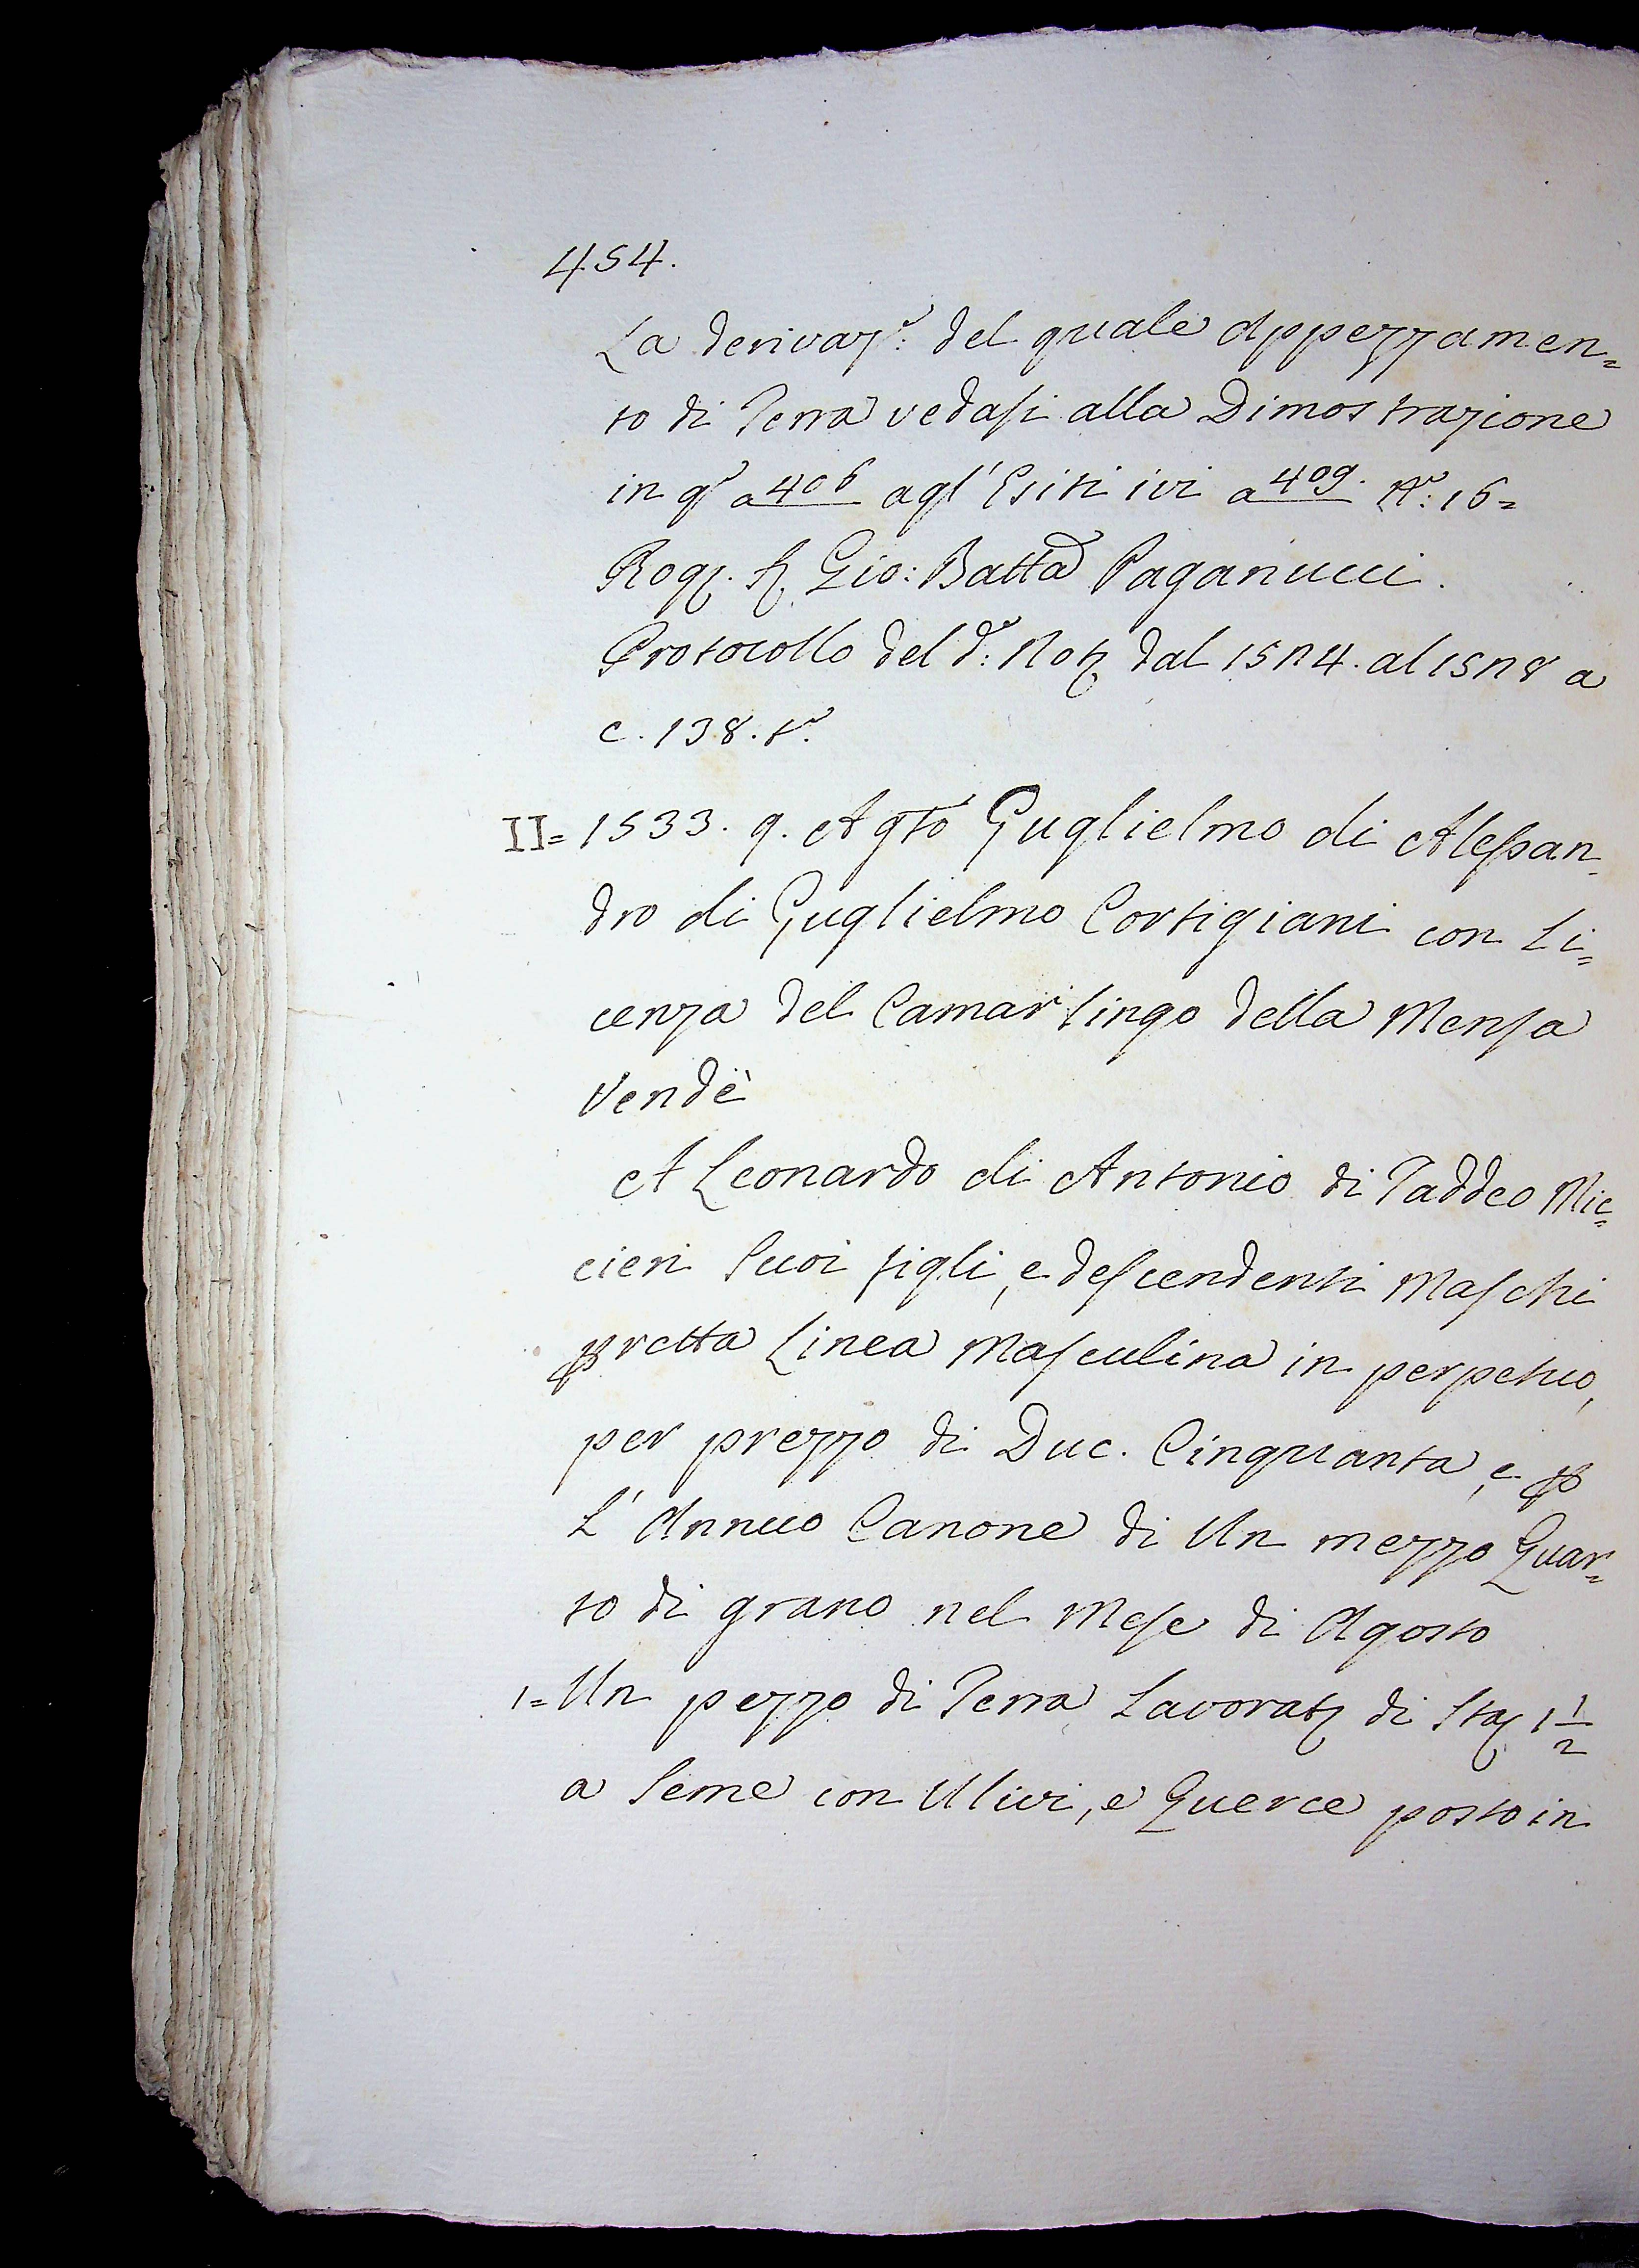 454.
La derivaz.e del quale Appezzamen=
to di Terra vedasi alla Dimostrazione
in q.o a 406 agl'Esiti ivi a 409. N.o: 16=
Rog. Gio: Batta Paganucci.
Protocollo del d.o: Not. dal 1574. al 1578 a
c. 138. t.o
II= 1533. 9. Agto Guglielmo di Alessan=
dro di Guglielmo Cortigiani con Li=
cenza del Camarlingo della Mensa
Vendè
A Leonardo di Antonio di Taddeo Mic=
cieri Suoi figli, e descendenti Maschi
p retta Linea Masculina in perpetuo,
per prezzo di Duc. Cinquanta, e p
L'Annuo Canone di Un mezzo Quar=
to di grano nel Mese di Agosto
1= Un pezzo di Terra Lavorat. di Sta. 1 1/2
a Seme con Ulivi, e Querce posto in